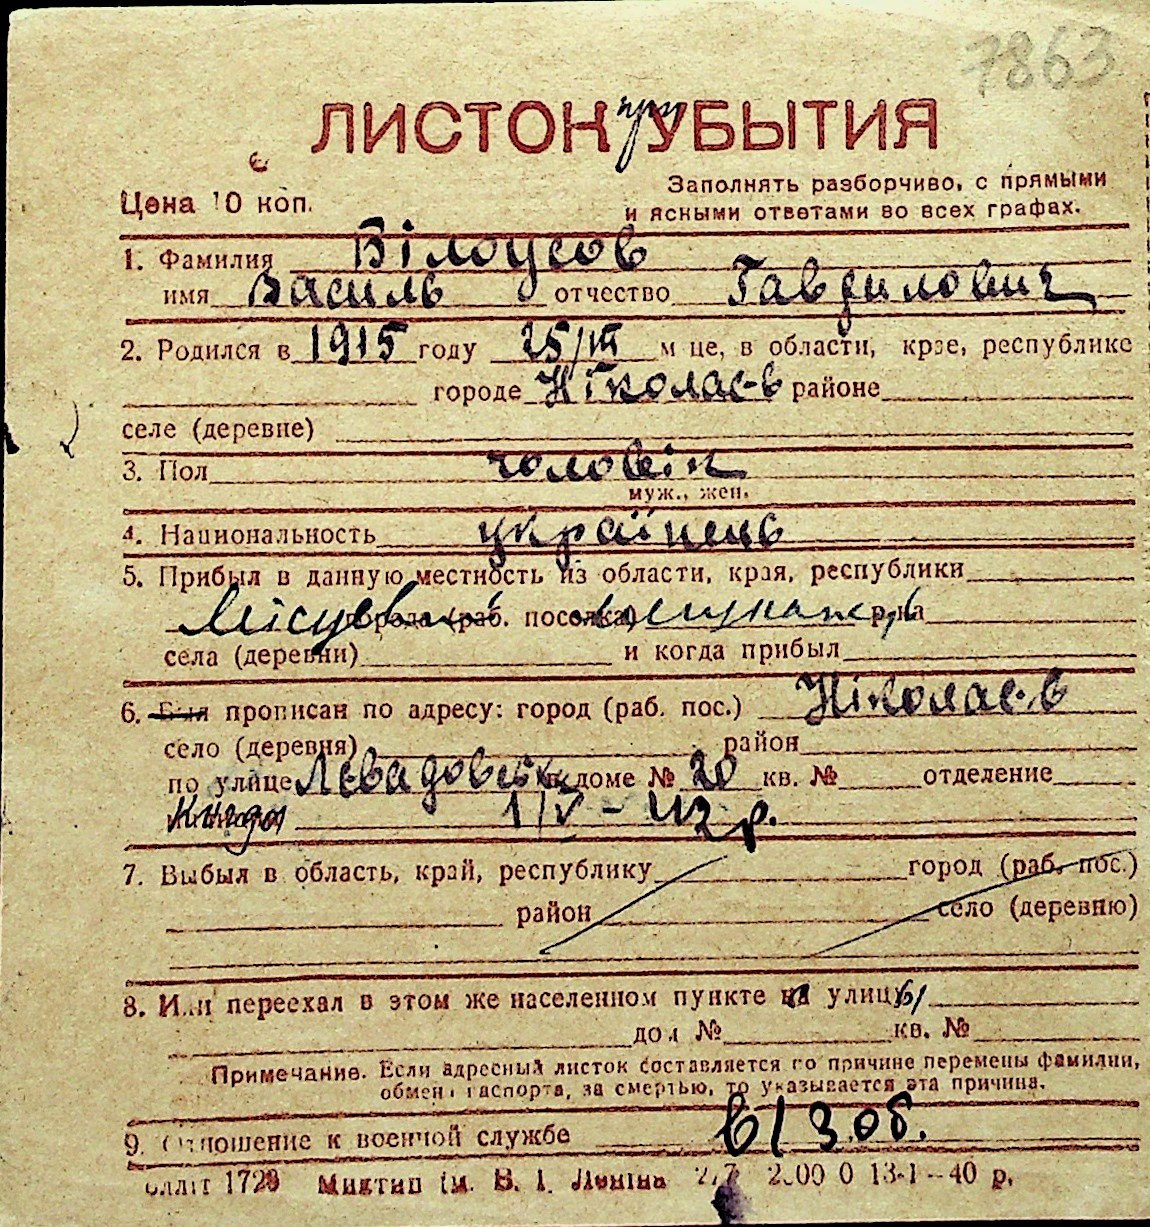 7863
ЛИСТОК при УБЫТИЯ
Цена 10 коп.
Заполнять разборчиво, с прямыми
и ясными ответами во всех графах.
1. Фамилия Білоусов
имя Василь отчество Гаврилович
2. Родился в 1915 году 25/III м-це, в области, крае, республике
городе Ніколаєв районе
селе (деревне)
3. Пол чоловік
муж., жен.
4. Национальность українець
5. Прибыл в данную местность из области, края, республики
Місцевий города (раб. поселка) р-на
села (деревни) и когда прибыл
6. Был прописан по адресу: город (раб. пос.) Ніколаєв
село (деревня) район
по улице в доме № 20 кв. № отделение
когда 1/V-42 р.
7. Выбыл в область, край, республику город (раб. пос.)
район село (деревню)
8. Или переехал в этом же населенном пункте улицы
дом № кв. №
Примечание. Если адресный листок составляется по причине перемены фамилии,
обмена паспорта, за смертью, то указывается эта причина.
9. Отношение к военной службе в/зоб.
1729 Миктип ім. В. І. Леніна 13-I-40 р.